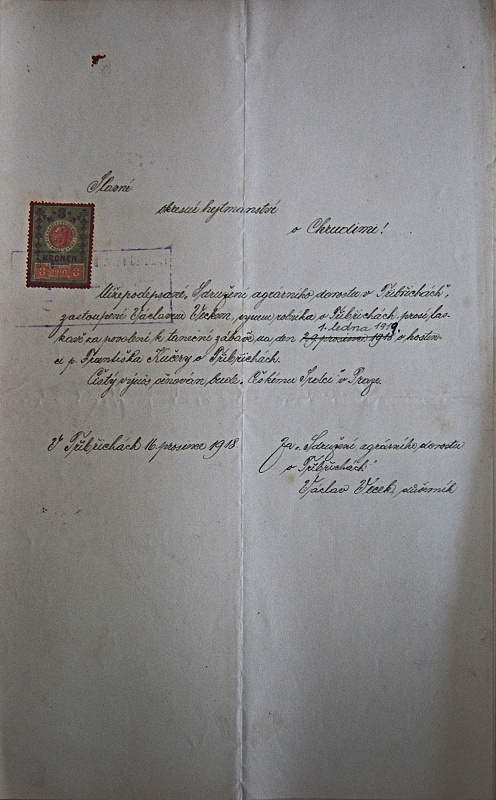 Slavné
okresní hejtmanství
v Chrudimi!
3
KRONEN
3 1910 3
Nížepodepsané „Sdružení agrárního dorostu v Třibřichách",
zastoupení Václavem Věckem, synem rolníka v Třibřichách prosí las-
kavě za povolení k taneční zábavě na den 29 prosince 1918 v hostin-
1. ledna 1919.
ci p. Františka Kučery v Třibřichách.
Čistý výnos věnován bude „Českému Srdci" v Praze.
V Třibřichách 16 prosince 1918.
Za „Sdružení agrárního dorostu
v Třibřichách"
Václav Věcek, důvěrník